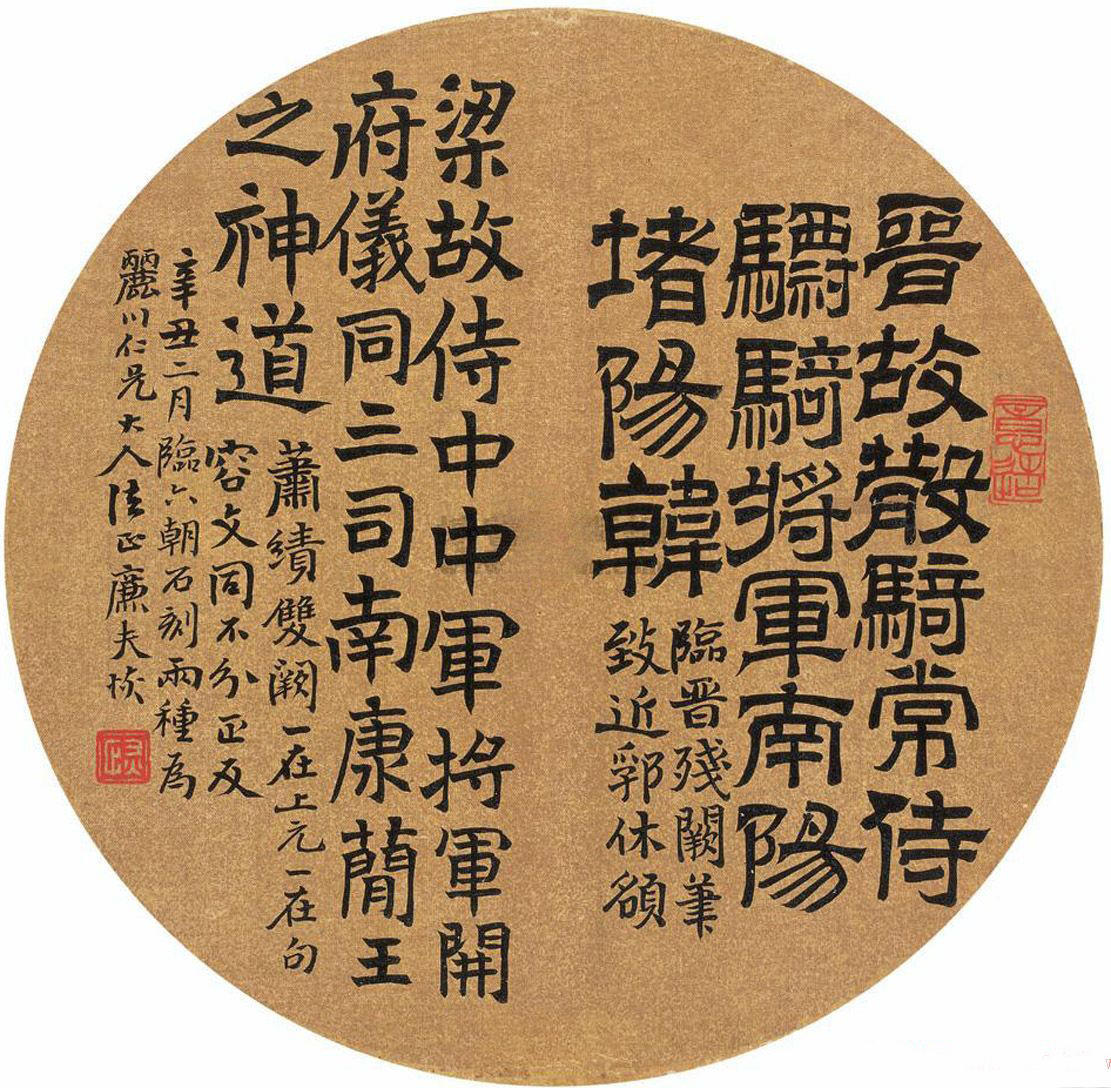 晉故散騎常侍
驃騎將軍南陽
堵陽韓
臨晋殘闕筆
致近郛休額
梁故侍中中軍將軍開
府儀同三司南康蕳王
之神道
蕭績雙闕一在上元一在句
容文同不分正反
辛丑二月臨六朝石刻兩種為
麗川仁兄大人法正廉夫恢
意造